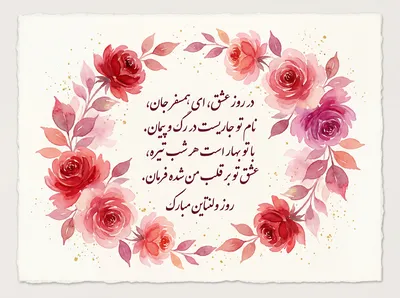 در روز عشق، ای همسفر جان،
نام تو جاریست در رگ و پیمان.
با تو بهار است هر شب تیره،
عشق تو بر قلب من شده فرمان.
روز ولنتاین مبارک